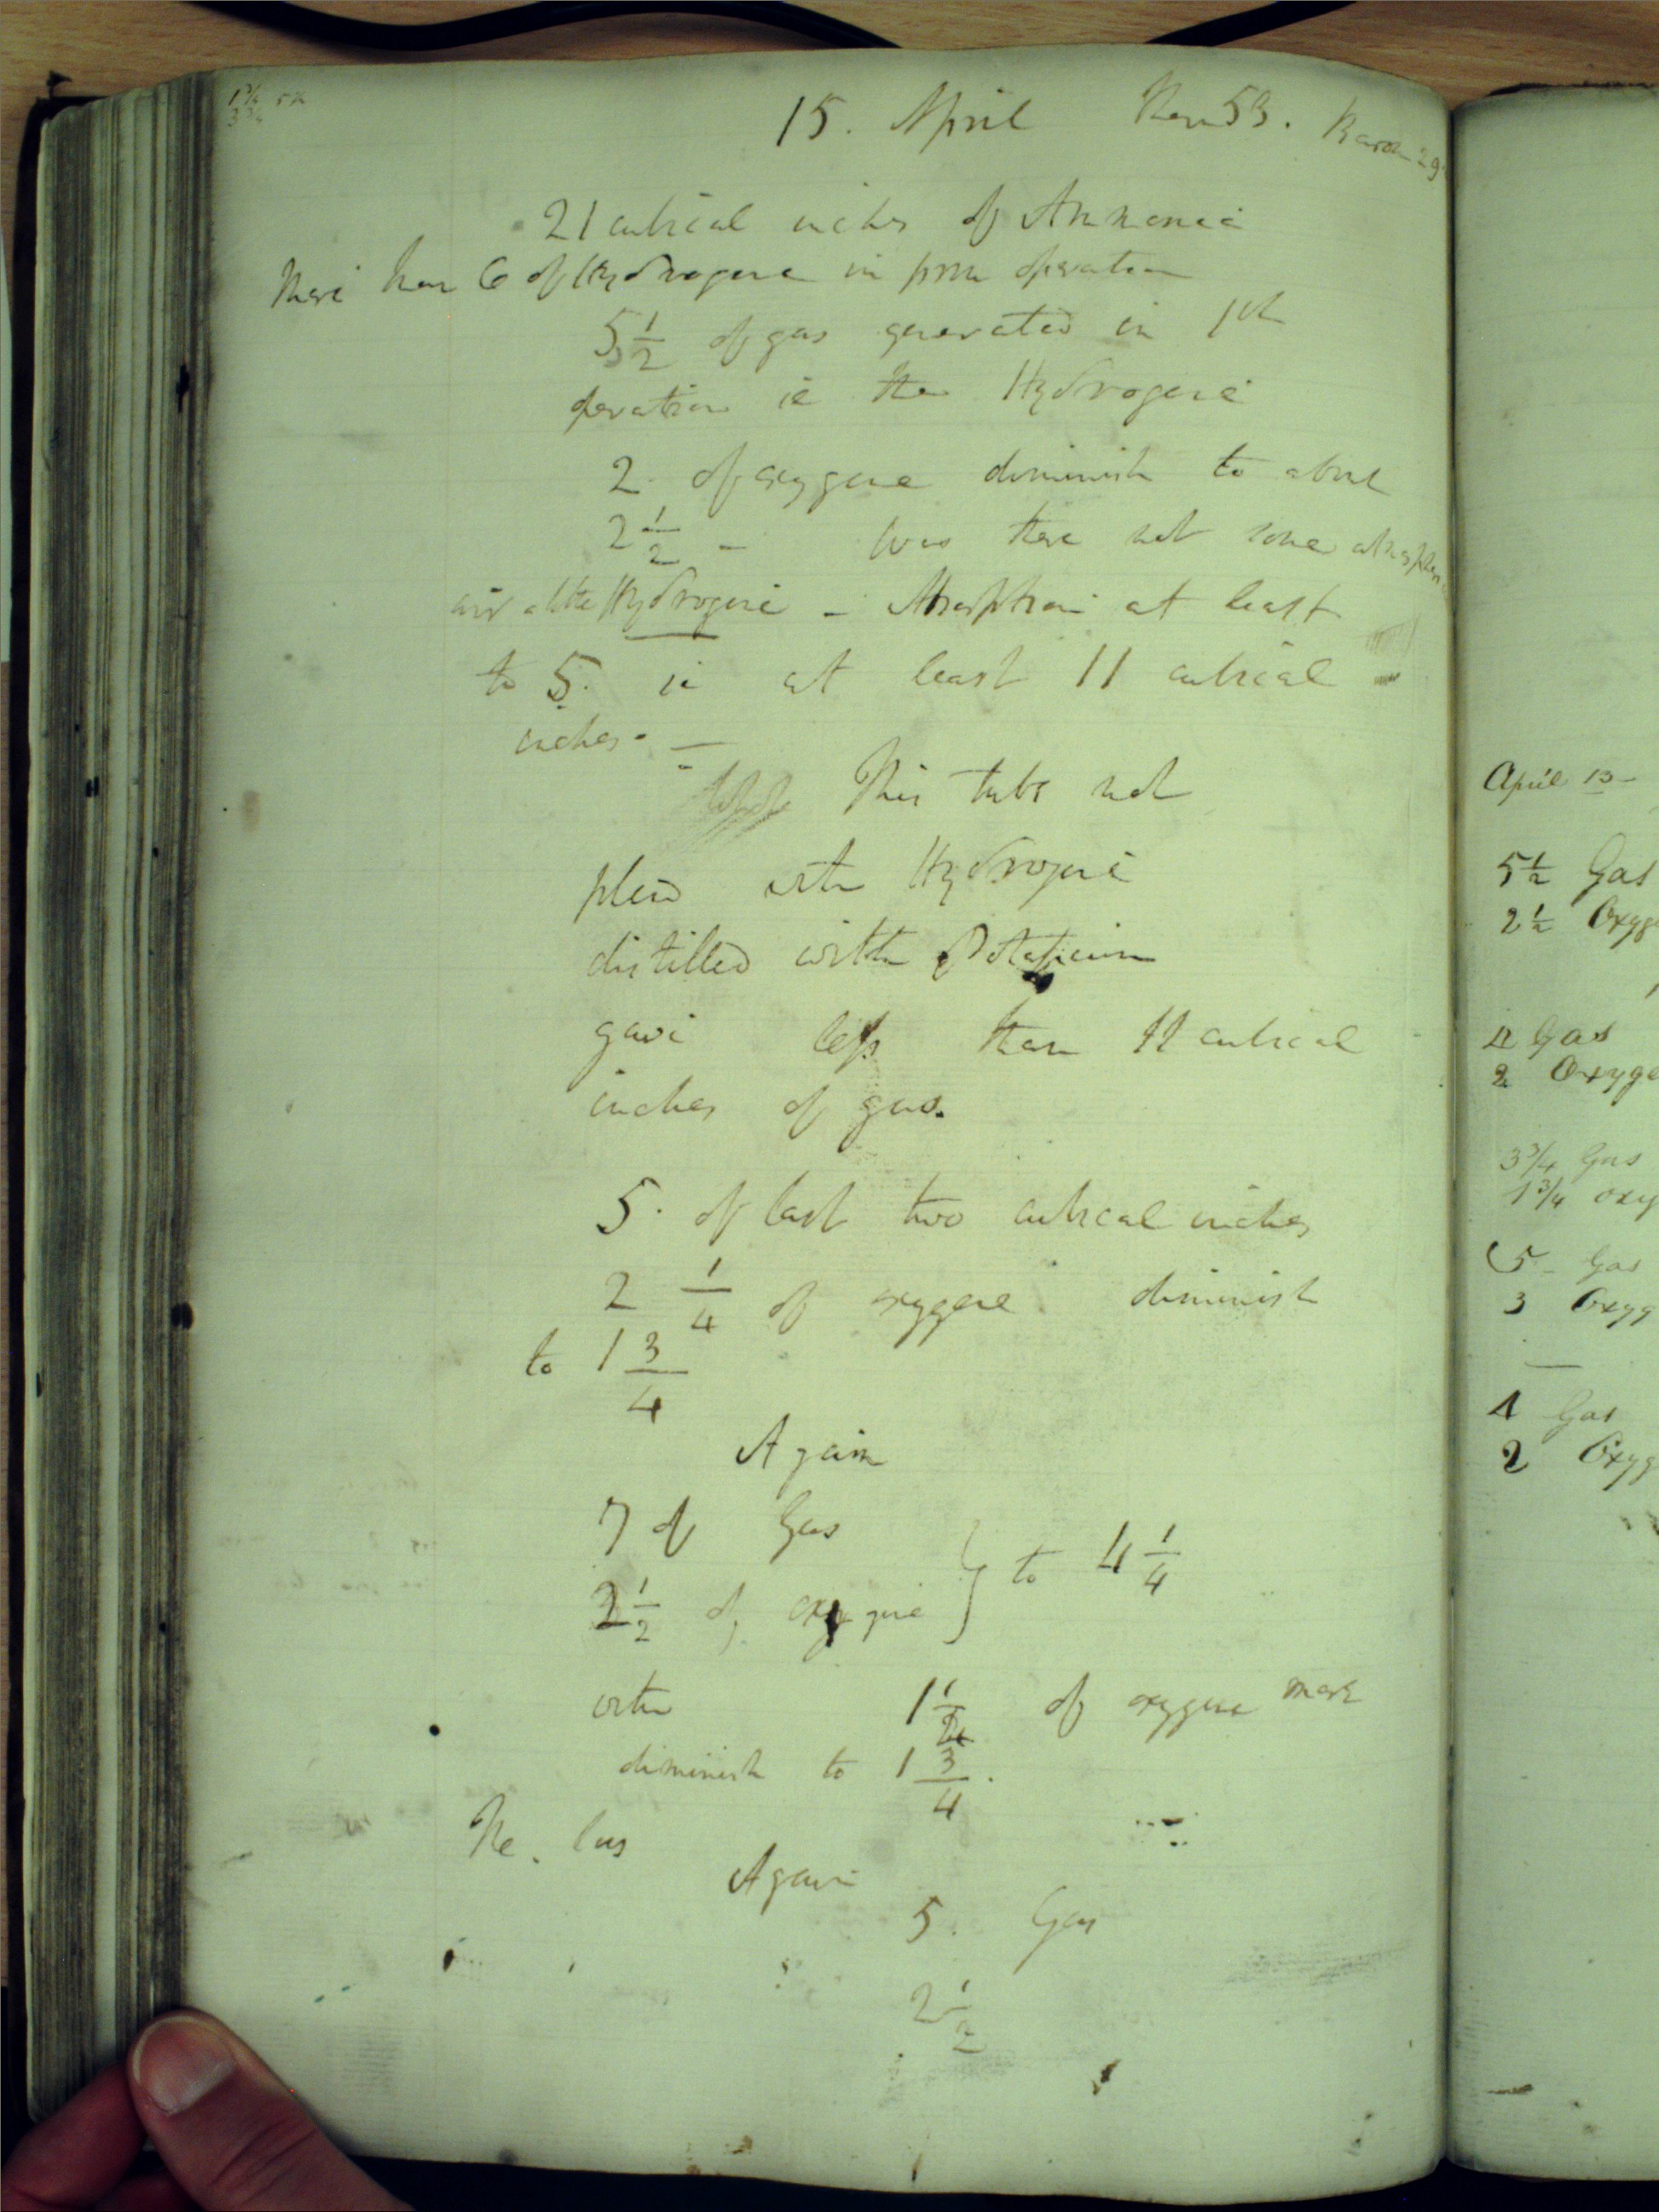 1 3/4 5
3 3/4
15. April Ther 53. Barom 29
21 cubical inches of Ammonia
More than 6 of Hydrogene in from operation
5 1/2 of gas generated in 1st
operation ie the Hydrogene
2. of oxygene diminish to about
2 1/2 – Was there not some atmospheric
air with Hydrogene – Absorption at least
to 5. ie at least 11 cubical
inches. –
This tube not
filled with Hydrogene
distilled with Potassium
gave less than 11 cubical
inches of gas.
5. of last two cubical inches
2 1/4 of oxygene diminish
to 1 3/4
Again
7 of Gas
2 1/2 of oxygene } to 4 1/4
with 1 1/2 of oxygene more
diminish to 1 3/4.
The
Again
5. Gas
2 1/2
April 13 –
5 1/2 Gas
2 1/2 Oxyg
4 Gas
2 Oxyge
3 3/4 Gas
1 3/4 oxy
(5 – Gas
3 Oxyg
4 Gas
2 Oxyg